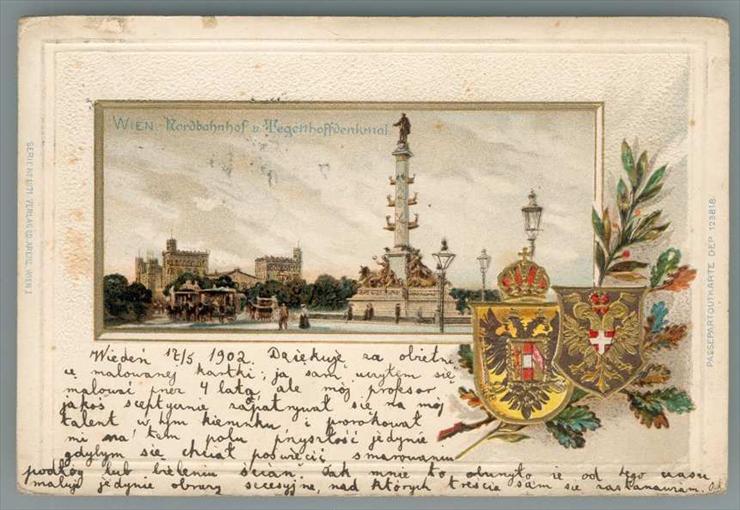 WIEN. Nordbahnhof u. Tegetthoffdenkmal.
SERIE No 1171 VERLAG CD. ARENZ, WIEN I
PASSEPARTOUTKARTE DEP. 123818.
Wiedeń 17/5 1902. Dziękuję za obietni
cę malowanej kartki; ja sam uczyłem się
malować przez 4 lata, ale mój profesor
jakoś sceptycznie zapatrywał się na mój
talent w tym kierunku i prorokował
mi na tem polu przyszłość jedynie
gdybym się chciał poświęcić smarowaniu
podłóg lub bieleniu ścian. Tak mnie to że od tego czasu
maluję jedynie obrazy secesyjne, nad których treścią sam się zastanawiam.